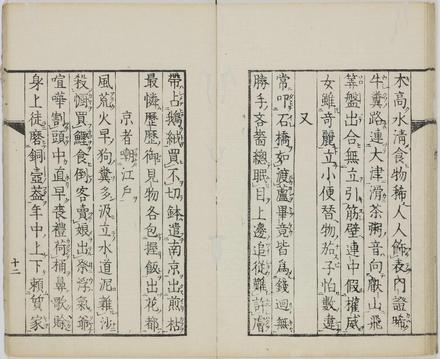 木高水清食物稀人人飾表内證晞
牛糞路連大津滑茶粥音向叡山飛
算盤出合無立引筋壁連中假權威
女雖奇麗立小便替物茄子怕數違
又
常叩石橋如渡蘆畢竟皆爲錢𢌞無
勝手吝嗇總眠目上邊追從難許膚
帶占鵝絨買不切鉢遣南京出煎枯
最憐歷歷御見物各包握飯出花都
京者嘲江戸
風荒火早狗糞多汲立水道泥雜沙
殺悔買鰹食倒客賣娘出祭浮氣爺
喧嘩割頭中直早喪禮荷桶鼻歌賒
身上徒磨銅壺葢年中上下賴質家
十二